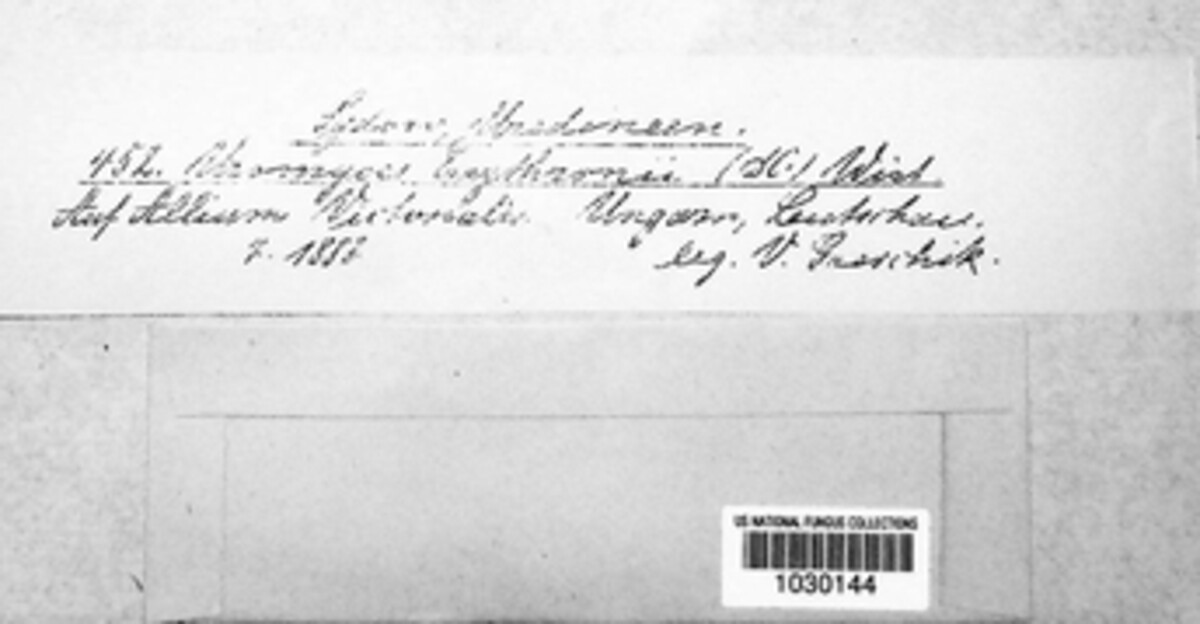 Sydow, Uredineen.
452. Uromyces Erythronii (DC.) Wint
Auf Allium Victorialis. Ungarn,
7. 1887 leg. V.
US NATIONAL FUNGUS COLLECTIONS
1030144